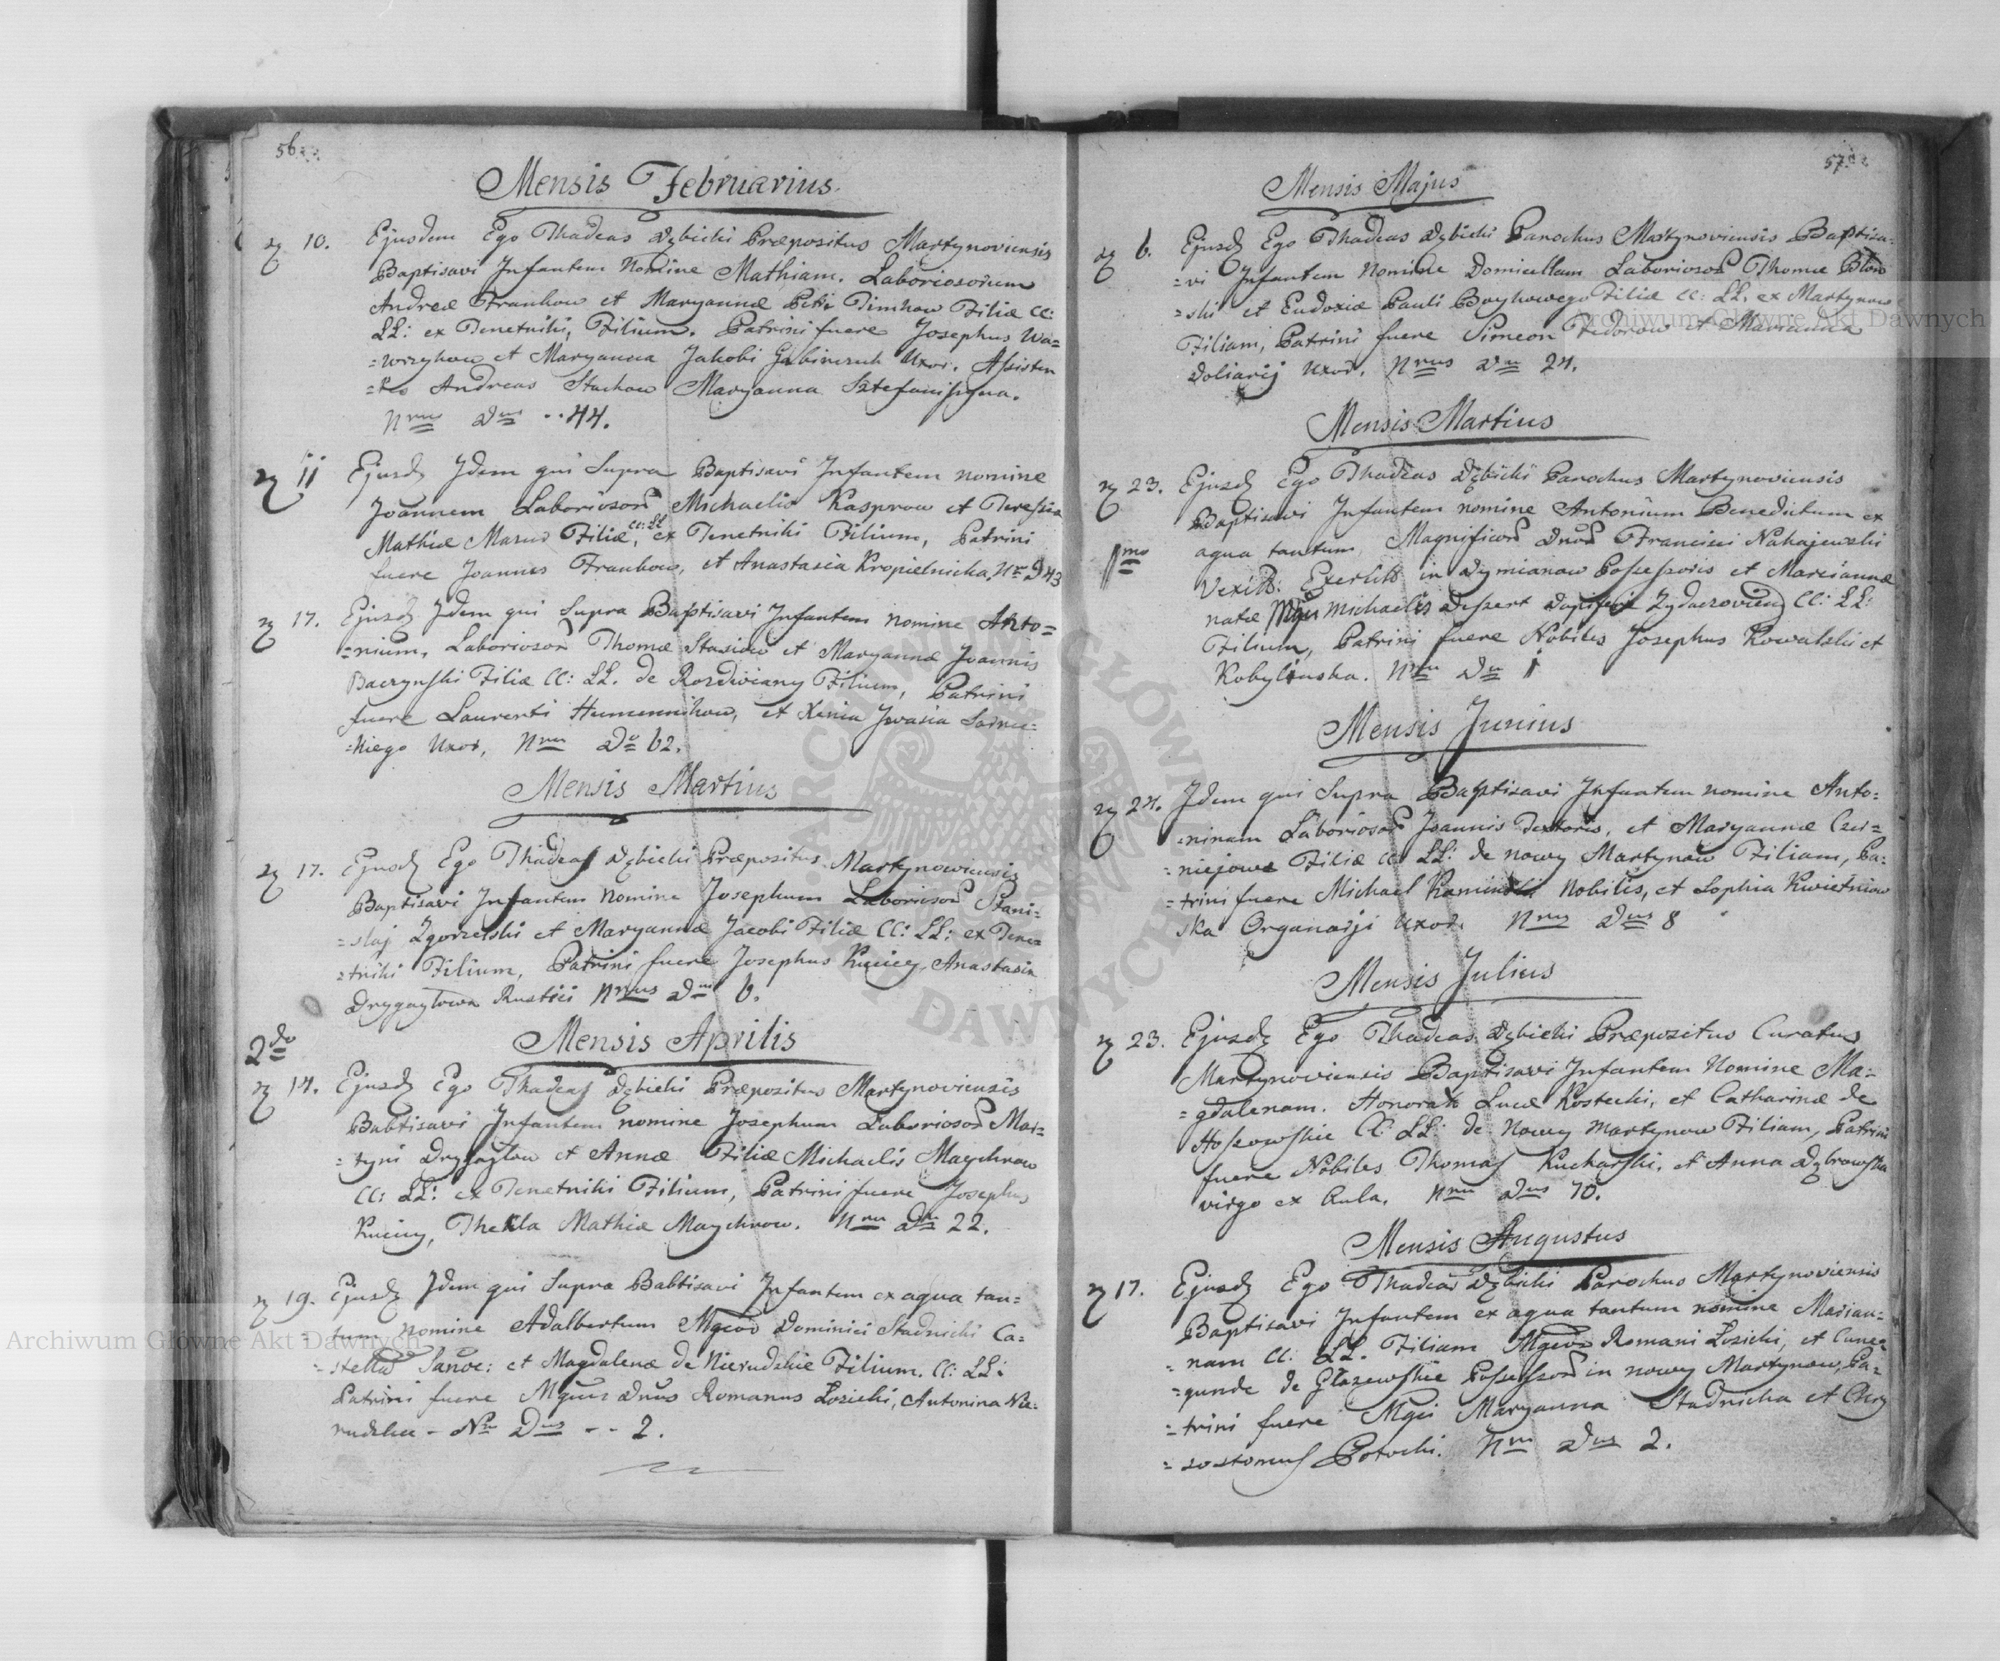 56
Mensis Februarius.
10. Ejusdem Ego Thadeas Dębicki Præpositus Martynoviensis
Baptisavi Infantem Nomine Mathiam. Laboriosorum
Andreæ Frankow et Maryannæ Petri Timkow Filiæ CC:
LL: ex Tenetniki, Filium. Patrini fuere Josephus Wa=
=wrzykow et Maryanna Jakobi Uxor. Assisten
=tes Andreas Stachow Maryanna
Nrus Dus 44.
11 Ejusd Idem qui Supra Baptisavi Infantem nomine
Joannem Laboriosor Michaelis Kasprow et Teressia
Mathiæ Filiæ, CC: LL ex Tenetniki Filium, Patrini
fuere Joannes Frankow, et Anastasia Kropielnicka, 43
17. Ejusd Idem qui Supra Baptisavi Infantem nomine Anto=
=nium, Laboriosor Thomæ Stasiow et Maryannæ Joannis
Baczynski Filiæ CC: LL. de Rozdwiany Filium, Patrini
fuere Laurenti Humennikow, et Xenia Iwasia
=kiego Uxor, Nrus Ds 62.
Mensis Martius
17. Ejusd Ego Thadeas Dębicki Præpositus Martynowiensis
Baptisavi Infantem Nomine Josephum Laboriosor Stani=
=slaj Zgorzelski et Maryannæ Jacobi Filiæ CC: LL: ex Tene=
=tniki Filium, Patrini fuere Josephus Anastasia
Rustici Nrus Dus 6.
2do
Mensis Aprilis
14. Ejusd Ego Thadeas Dębicki Præpositus Martynoviensis
Babtisavi Infantem nomine Josephum Laboriosor Mar=
=tyni et Annæ Filiæ Michaelis Maychrow
CC: LL: ex Tenetniki Filium, Patrini fuere Josephus
Thekla Mathiæ Maychrow. Nrus Dus 22.
19. Ejusd Idem qui Supra Babtisavi Infantem ex aqua tan=
=tum nomine Adalbertum Mgcor Dominici Stadnicki Ca=
=stella Sanoc: et Magdalenæ de Nierudzkie Filium. CC: LL:
Patrini fuere Mgcus Dnus Romanus Łozicki, Antonina Nie=
rudzka - Nrus Dus - - 2.
57
Mensis Majus
6. Ejusd Ego Thadeas Dębicki Parochus Martynoviensis Baptisa=
=vi Infantem Nomine Domicellam Laboriosor Thomæ
=ski et Eudoxiæ Pauli Boykowego Filiæ CC: LL. ex Martynow
Filiam, Patrini fuere Simeon Fedorow et Marianna
Doliarij Uxor. Nrus Dus 24.
Mensis Martius
23. Ejusd Ego Thadeas Dębicki Parochus Martynoviensis
Baptisavi Infantem nomine Antonium Benedictum ex
1mo
aqua tantum, Magnificor Dnor Francisci Nahajewski
in Dymianow Possessoris et Mariannæ
natæ Michaelis CC: LL:
Filium, Patrini fuere Nobiles Josephus Kowalski et
Kobylinska. Nrus Dus 1
Mensis Junius
24. Idem qui Supra Baptisavi Infantem nomine Anto=
=ninam Laboriosor Joannis Textoris, et Maryannæ
Filiæ CC: LL: de nowy Martynow Filiam, Pa=
=trini fuere Michael Kaminski Nobilis, et Sophia Kwietniow
ska Organarij Uxor. Nrus Dus 8
Mensis Julius
23. Ejusd Ego Thadeas Dębicki Præpositus Curatus
Martynoviensis Baptisavi Infantem Nomine Ma=
=gdalenam. Honorat Lucæ Kostecki, et Catharinæ de
CC: LL: de Nowy Martynow Filiam, Patrini
fuere Nobiles Thomas Kucharski, et Anna Dąbrowska
virgo ex Aula. Nrus Dus 70.
Mensis Augustus
17. Ejusd Ego Thadeas Dębicki Parochus Martynoviensis
Baptisavi Infantem ex aqua tantum nomine Marian=
=nam CC: LL. Filiam Mgcor Romani Łozicki, et Cune=
=gunde de Głazewskie Possessor in nowy Martynow, Pa=
=trini fuere Mgci Maryanna Stadnicka et Chry
=sostomus Potocki. Nrus Dus 2.
Archiwum Główne Akt Dawnych
Archiwum Główne Akt Dawnych
ARCHIWUM GŁÓWNE AKT DAWNYCH